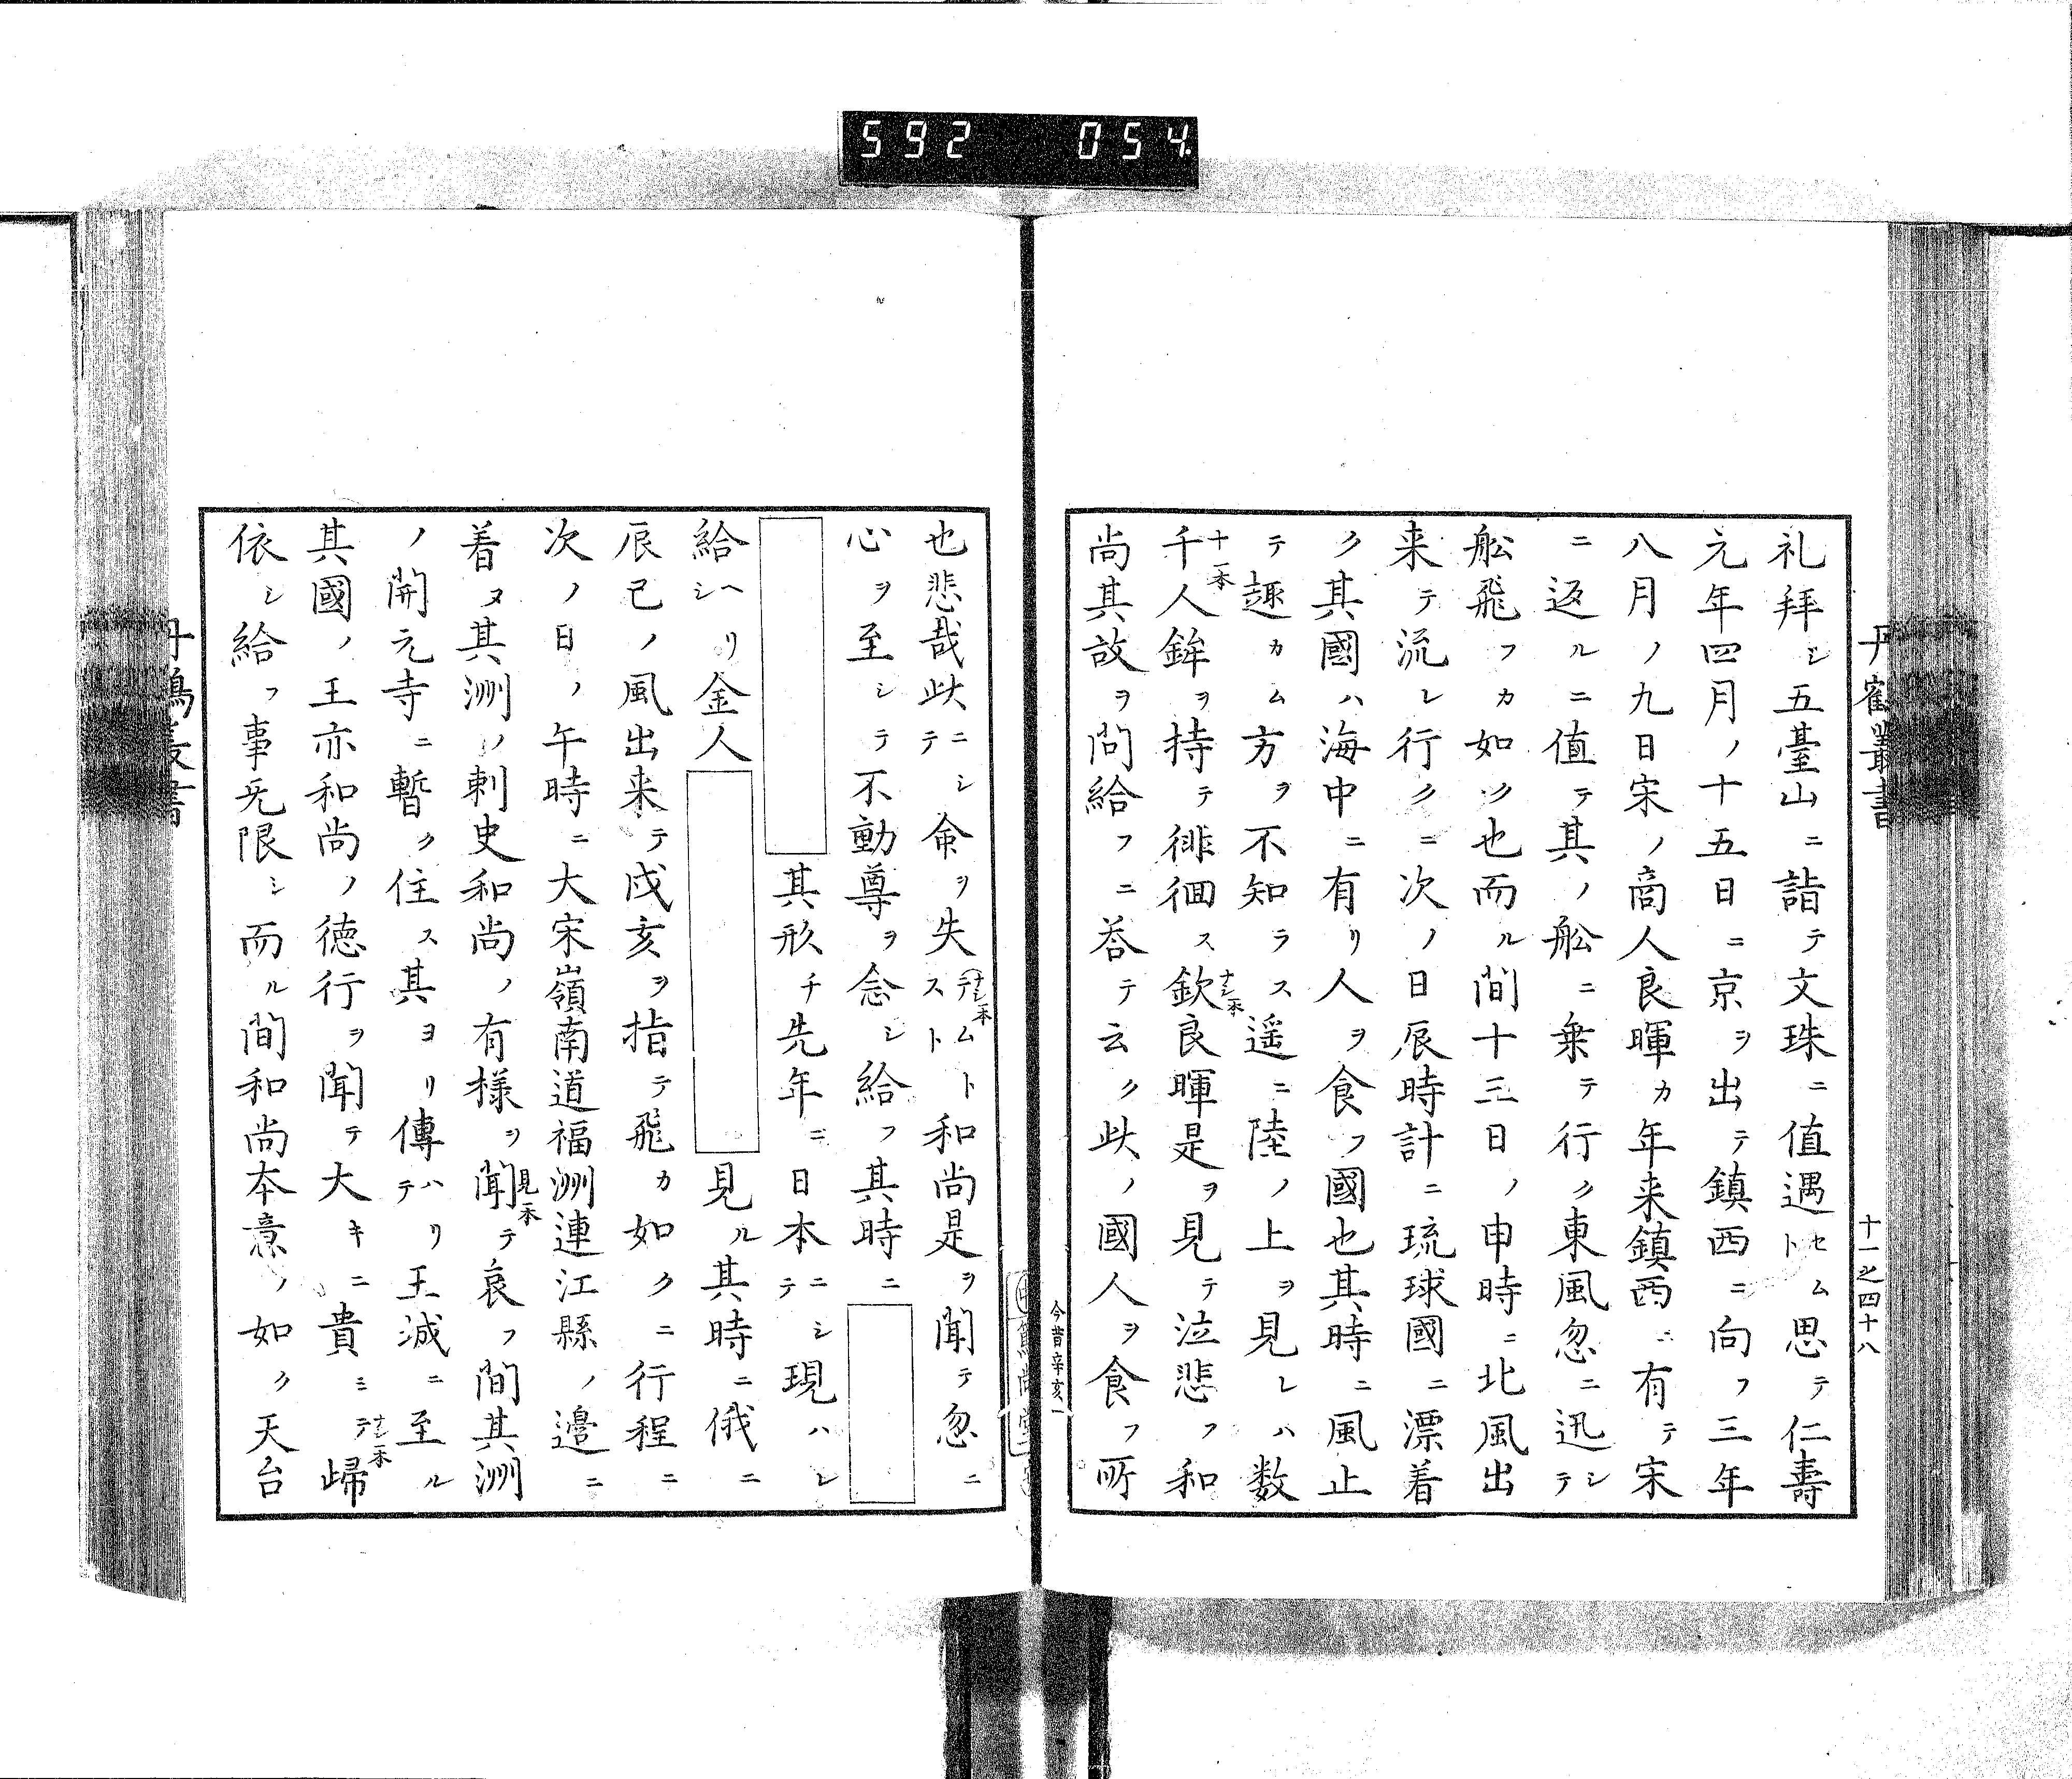 592 054
丹鶴叢書
十一之四十八
礼拜シ五臺山ニ詣テ文珠ニ值遇セムト思テ仁壽
元年四月ノ十五日ニ京ヲ出テ鎮西ニ向フ三年
八月ノ九日宋ノ商人良暉カ年来鎮西ニ有テ宋
ニ返ルニ值テ其ノ舩ニ乗テ行ク東風忽ニ迅シテ
舩飛フカ如ク也而ル間十三日ノ申時ニ北風出
来テ流レ行クニ次ノ日辰時計ニ琉球國ニ漂着
ク其國ハ海中ニ有リ人ヲ食フ國也其時ニ風止
テ趣カム方ヲ不知ラス遥ニ陸ノ上ヲ見レハ数
千人鉾ヲ持テ徘徊ス欽良暉是ヲ見テ泣悲フ和
十一本
ナシ一本
尚其故ヲ問給フニ荅テ云ク此ノ國人ヲ食フ所
今昔辛亥一
也悲哉此ニシテ命ヲ失ステムトスト和尚是ヲ聞テ忽ニ
ナシ一本
心ヲ至シテ不動尊ヲ念シ給フ其時ニ
其形チ先年ニ日本ニシテ現ハレ
給ヘリシ金人 見ル其時ニ俄ニ
辰巳ノ風出来テ戌亥ヲ指テ飛カ如クニ行程ニ
次ノ日ノ午時ニ大宋嶺南道福洲連江縣ノ邊ニ
着ヌ其洲ノ刺史和尚ノ有様ヲ聞テ哀フ間其洲
見一本
ノ開元寺ニ暫ク住ス其ヨリ傳ハリテ王滅ニ至ル
其國ノ王亦和尚ノ徳行ヲ聞テ大キニ貴ミテ歸
ナシ一本
依シ給フ事无限シ而ル間和尚本意ノ如ク天台